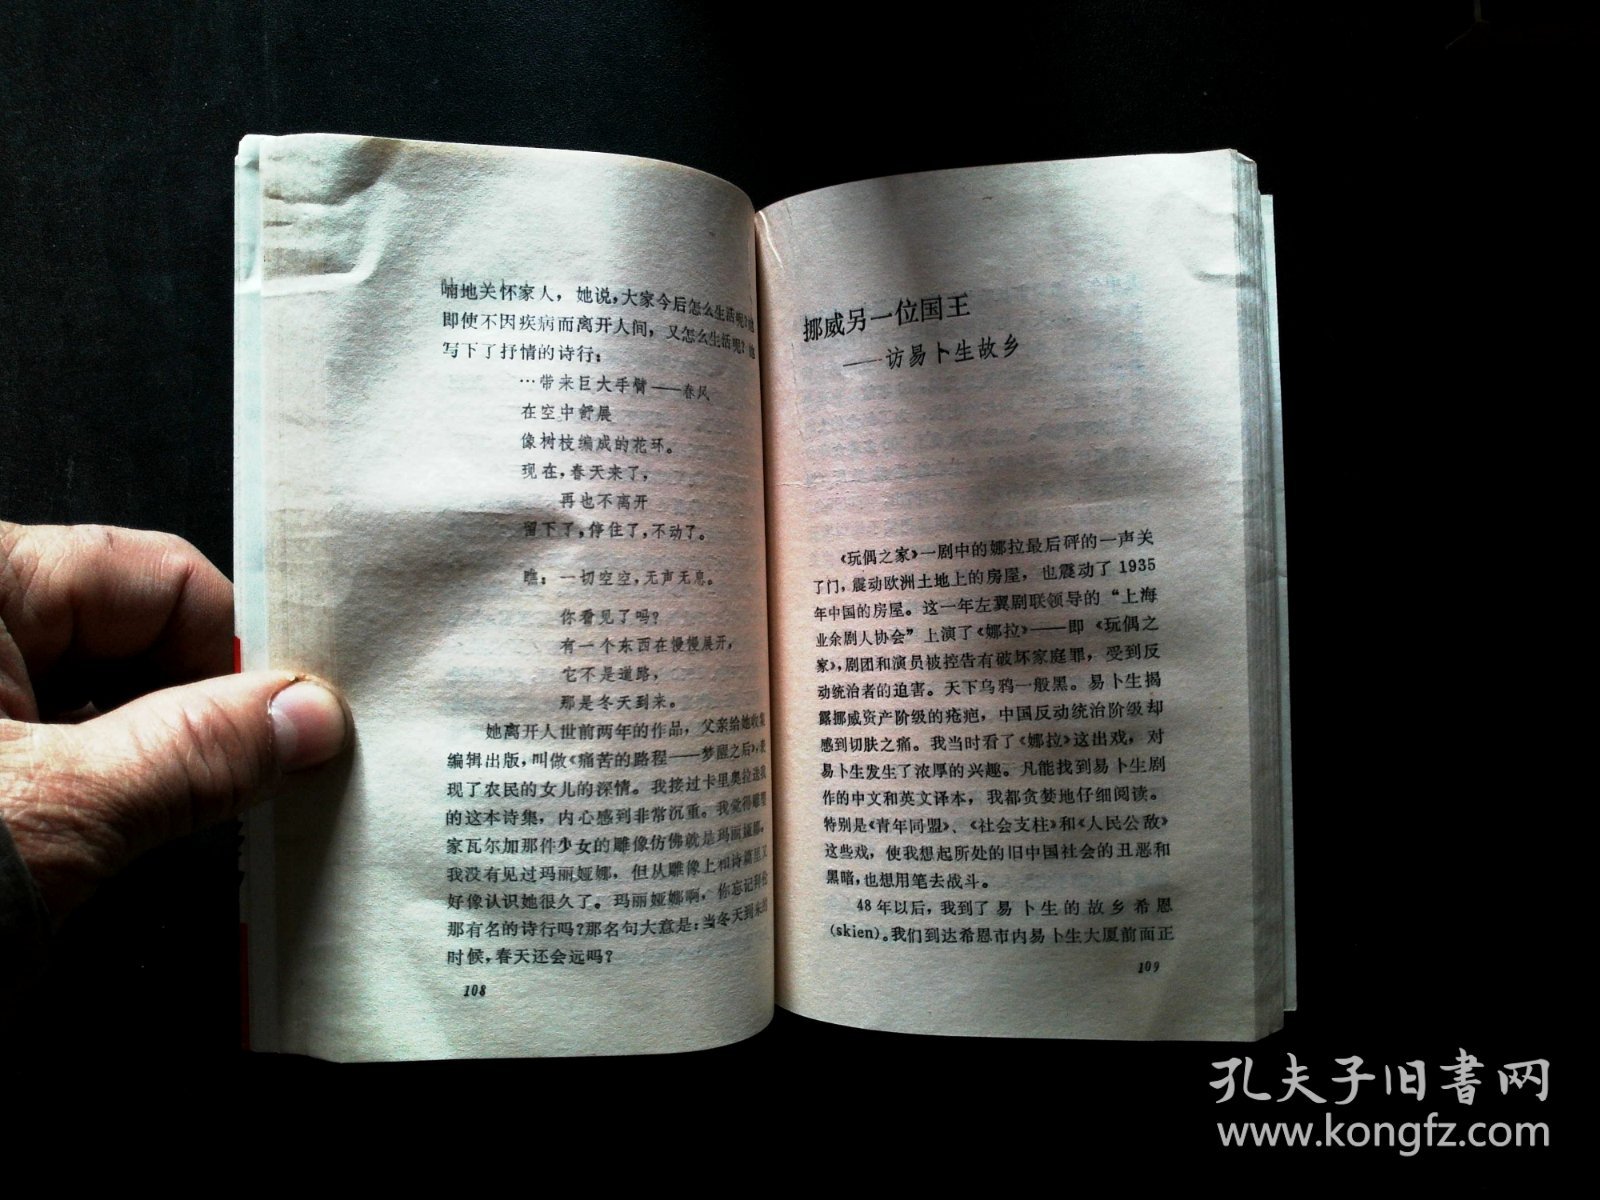 喃地关怀家人，她说，大家今后怎么生活呢？她
即使不因疾病而离开人间，又怎么生活呢？她
写下了抒情的诗行：
…带来巨大手臂——春风
在空中舒展
像树枝编成的花环。
现在，春天来了，
再也不离开
留下了，停住了，不动了。
瞧：一切空空，无声无息。
你看见了吗？
有一个东西在慢慢展开，
它不是道路，
那是冬天到来。
她离开人世前两年的作品，父亲给她收集
编辑出版，叫做《痛苦的路程——梦醒之后》，表
现了农民的女儿的深情。我接过卡里奥拉送我
的这本诗集，内心感到非常沉重。我觉得雕塑
家瓦尔加那件少女的雕像仿佛就是玛丽娅娜。
我没有见过玛丽娅娜，但从雕像上和诗篇里又
好像认识她很久了。玛丽娅娜啊，你忘记拜伦
那有名的诗行吗？那名句大意是：当冬天到来的
时候，春天还会远吗？
108
挪威另一位国王
——访易卜生故乡
《玩偶之家》一剧中的娜拉最后砰的一声关
了门，震动欧洲土地上的房屋，也震动了1935
年中国的房屋。这一年左翼剧联领导的“上海
业余剧人协会”上演了《娜拉》——即《玩偶之
家》，剧团和演员被控告有破坏家庭罪，受到反
动统治者的迫害。天下乌鸦一般黑。易卜生揭
露挪威资产阶级的疮疤，中国反动统治阶级却
感到切肤之痛。我当时看了《娜拉》这出戏，对
易卜生发生了浓厚的兴趣。凡能找到易卜生剧
作的中文和英文译本，我都贪婪地仔细阅读。
特别是《青年同盟》、《社会支柱》和《人民公敌》
这些戏，使我想起所处的旧中国社会的丑恶和
黑暗，也想用笔去战斗。
48年以后，我到了易卜生的故乡希恩
(skien)。我们到达希恩市内易卜生大厦前面正
109
孔夫子旧书网
www.kongfz.com